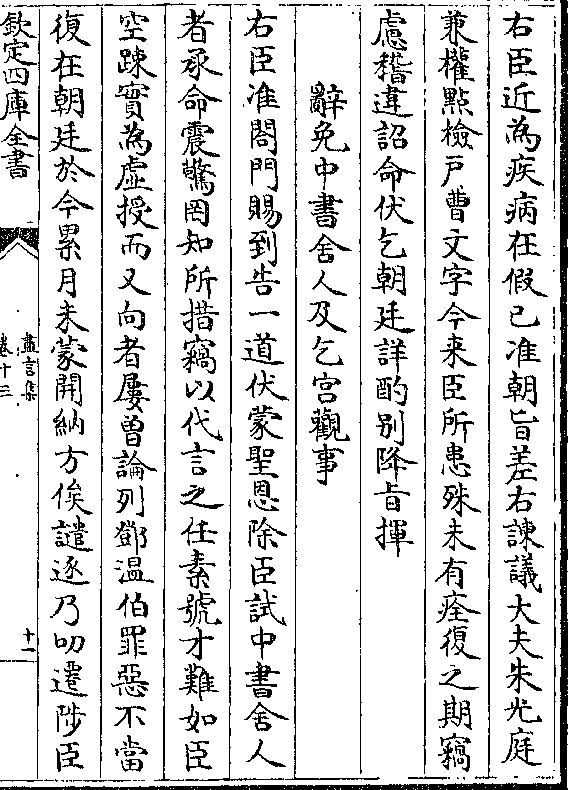 右臣近為疾病在假已准朝旨差右諫議大夫朱光庭
兼權點檢戶曹文字今来臣所患殊未有痊復之期竊
慮稽違詔命伏乞朝廷詳酌别降旨揮
辭免中書舍人及乞宮觀事
右臣准閤門賜到告一道伏蒙聖恩除臣試中書舍人
者承命震驚罔知所措竊以代言之任素號才難如臣
空踈實為虛授而又向者屢曾論列鄧温伯罪惡不當
復在朝廷於今累月未蒙開納方俟譴逐乃叨遷陟臣
欽定四庫全書
盡言集
卷十三
十一